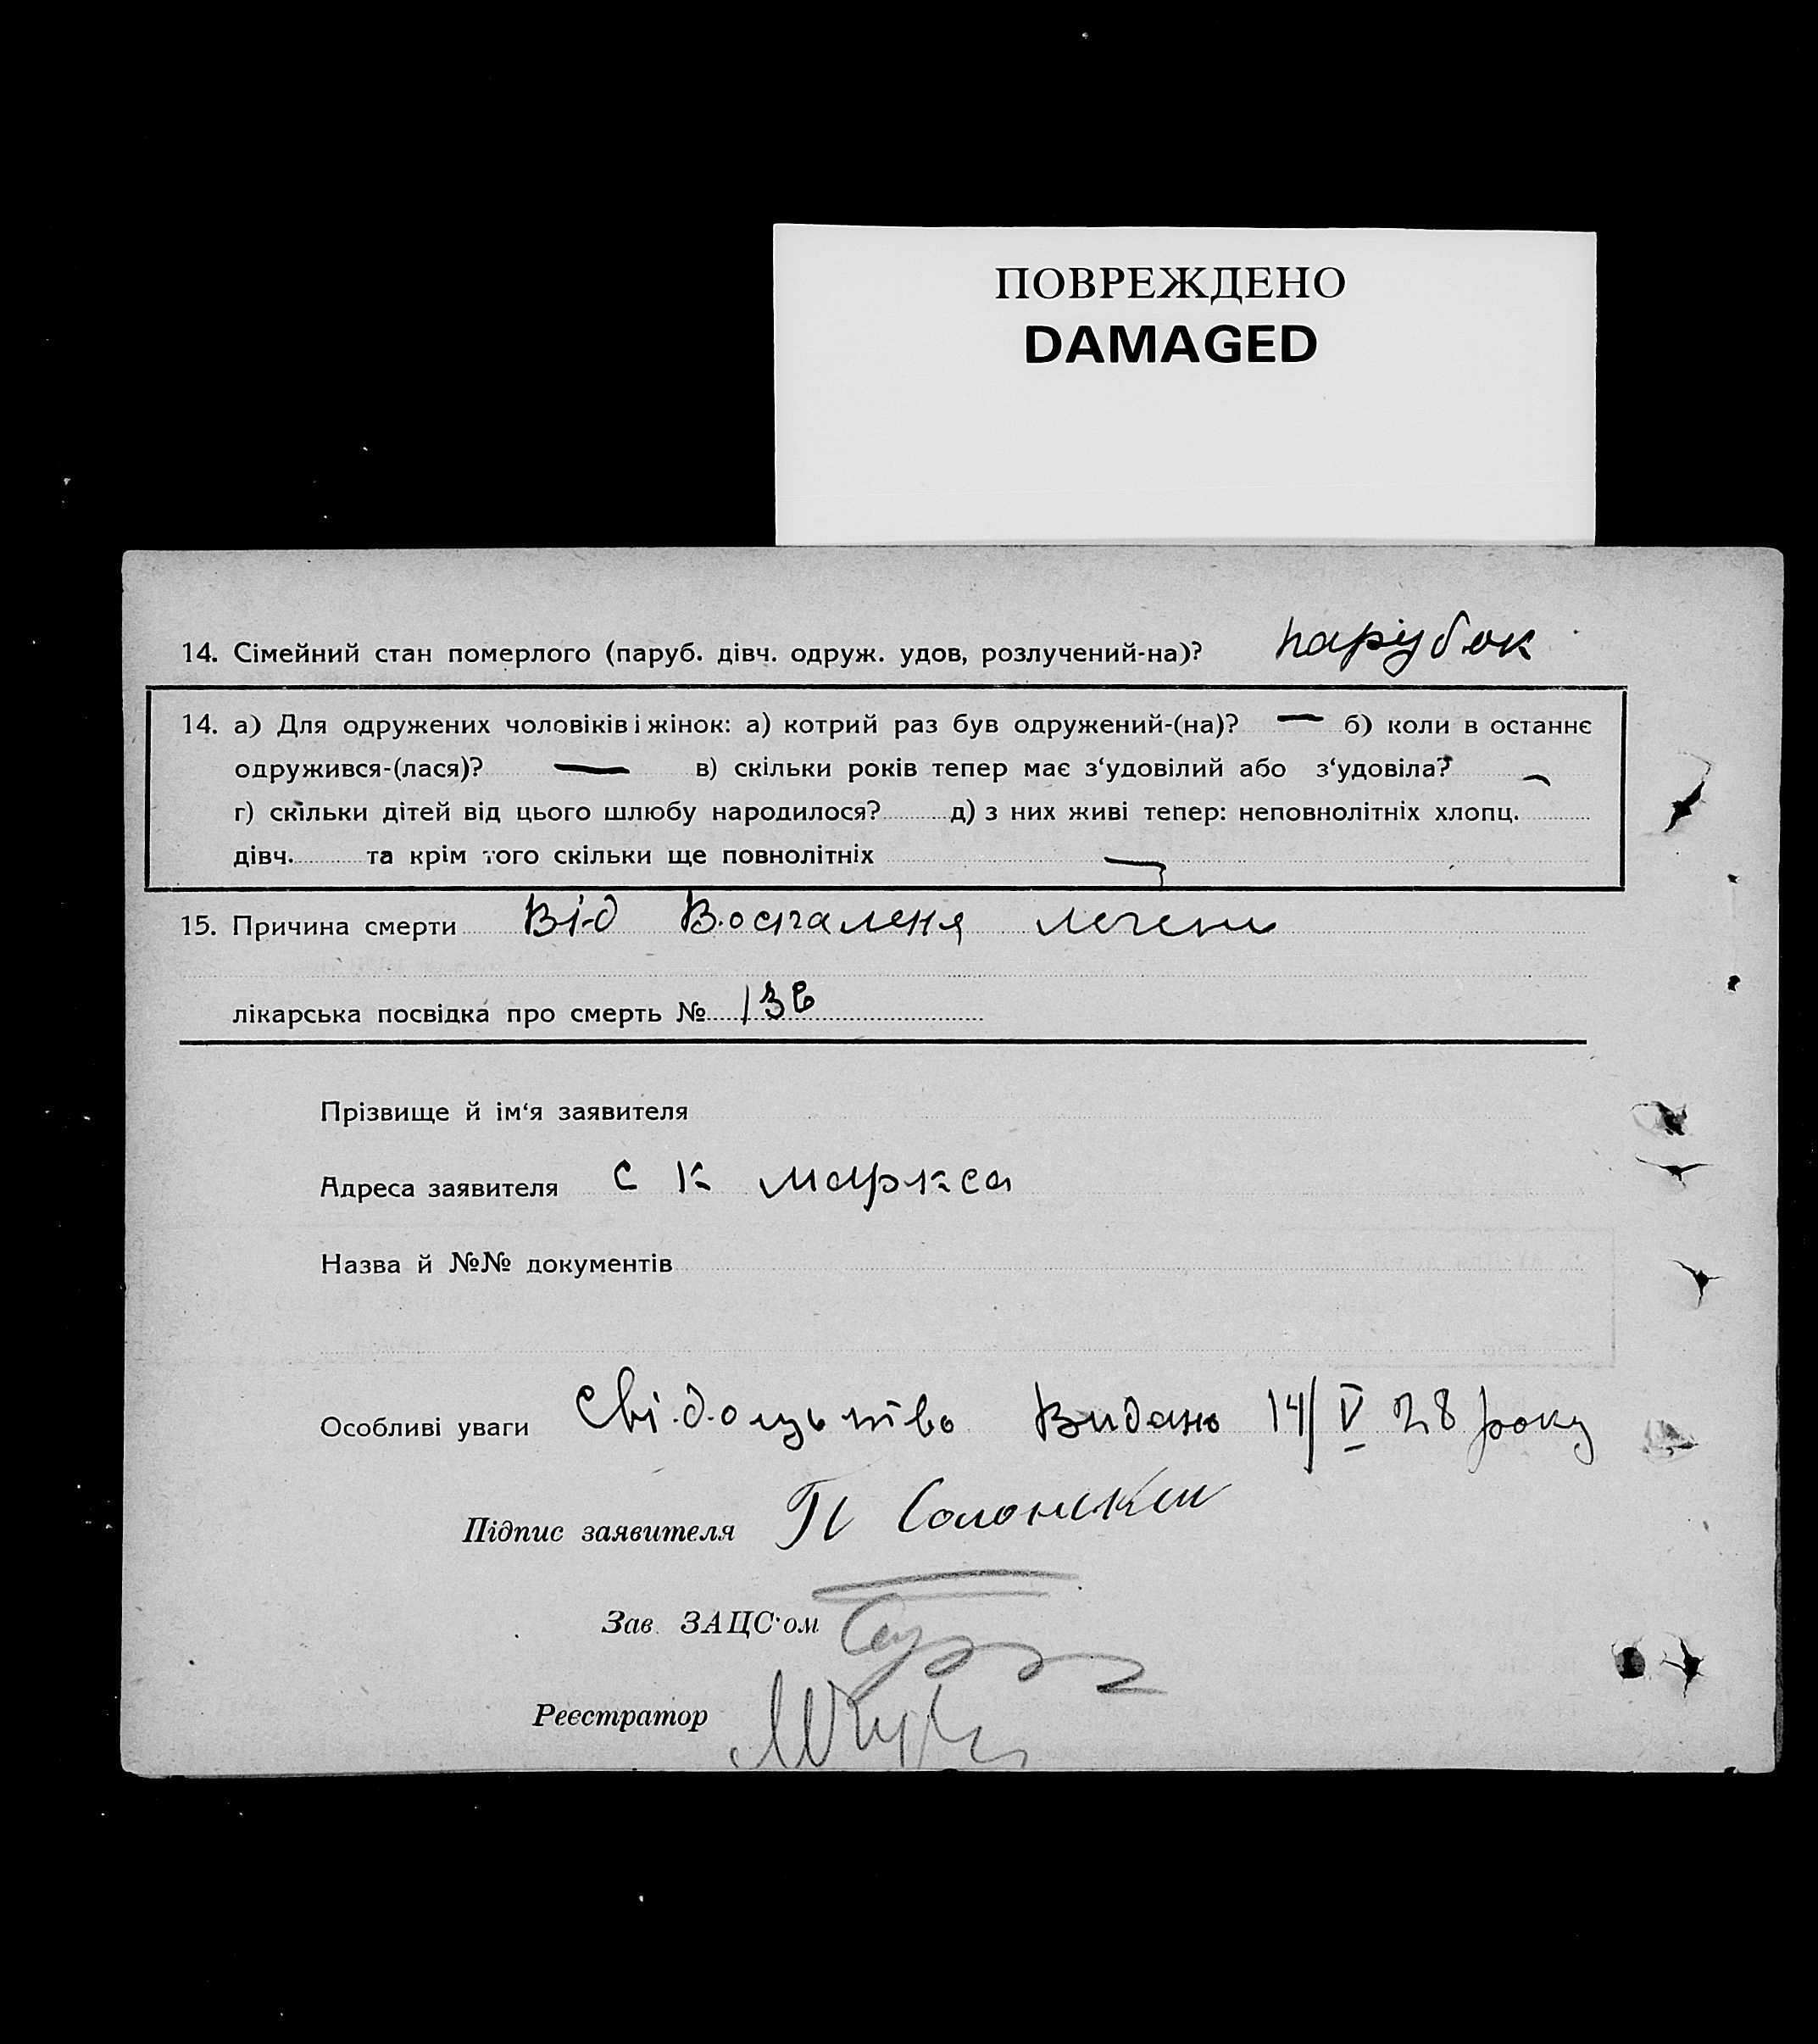 ПОВРЕЖДЕНО
DAMAGED
14. Сімейний стан померлого (паруб. дівч. одруж. удов, розлучений-на)? парубок
14. а) Для одружених чоловіків і жінок: а) котрий раз був одружений-(на)? — б) коли в останнє
одружився-(лася)? — в) скільки років тепер має з‘удовілий або з‘удовіла? —
г) скільки дітей від цього шлюбу народилося? д) з них живі тепер: неповнолітніх хлопц.
дівч. та крім того скільки ще повнолітніх —
15. Причина смерти Від Воспаленя легени
лікарська посвідка про смерть № 136
Прізвище й ім‘я заявителя
Адреса заявителя С К маркса
Назва й №№ документів
Особливі уваги Свідоцьтво Видано 14/V 28 року
Підпис заявителя
Зав. ЗАЦС‘ом
Реєстратор